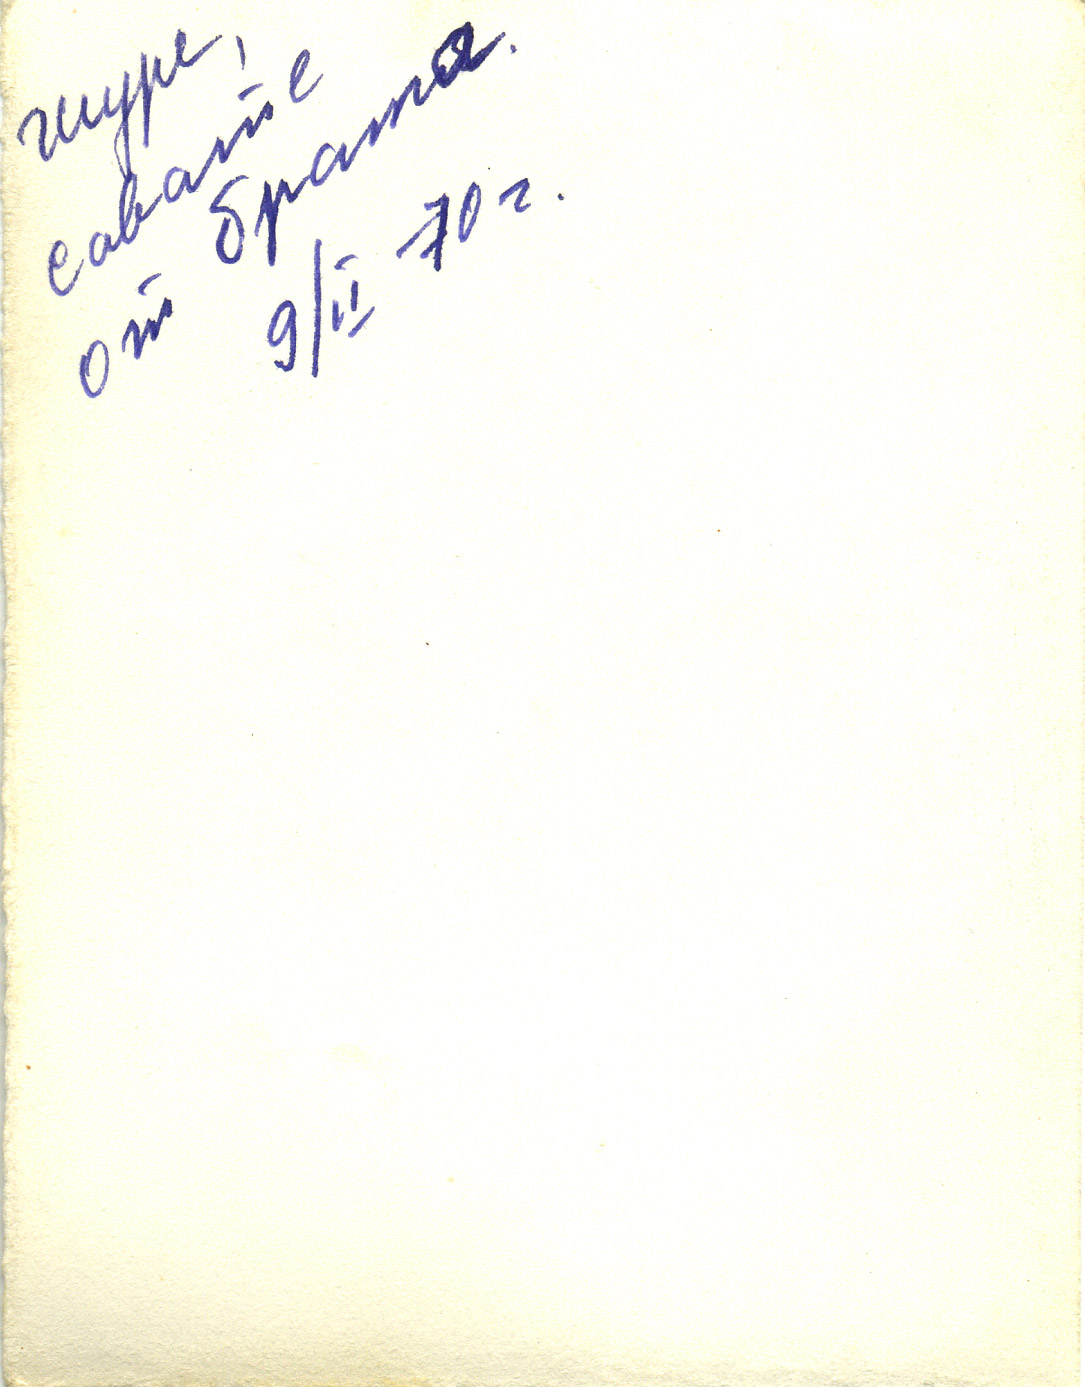 Шуре,
Савате
от брата.
9/II–70 г.